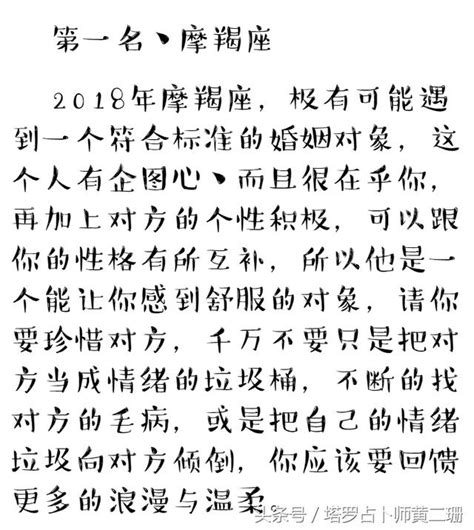 第一名丶摩羯座
2018年摩羯座，极有可能遇
到一个符合标准的婚姻对象，这
个人有企图心丶而且很在乎你，
再加上对方的个性积极，可以跟
你的性格有所互补，所以他是一
个能让你感到舒服的对象，请你
要珍惜对方，千万不要只是把对
方当成情绪的垃圾桶，不断的找
对方的毛病，或是把自己的情绪
垃圾向对方倾倒，你应该要回馈
更多的浪漫与温柔。
头条号／塔罗占卜师黄二珊